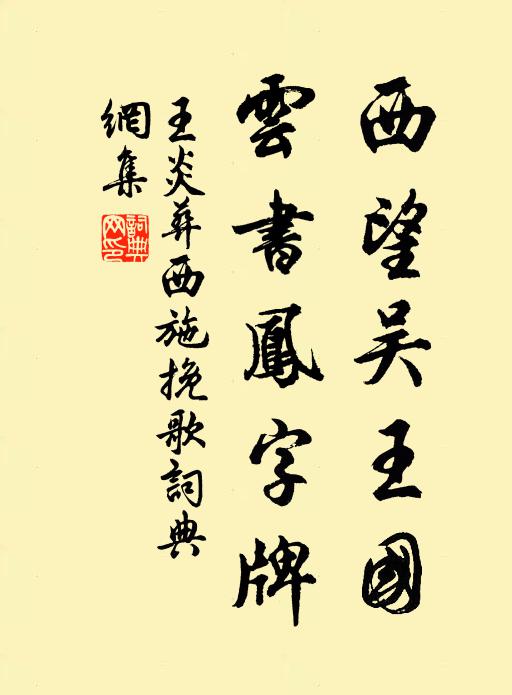 西望吴王國
雲書鳳字牌
王炎葬西施挽歌詞典
網集
詞典
网印